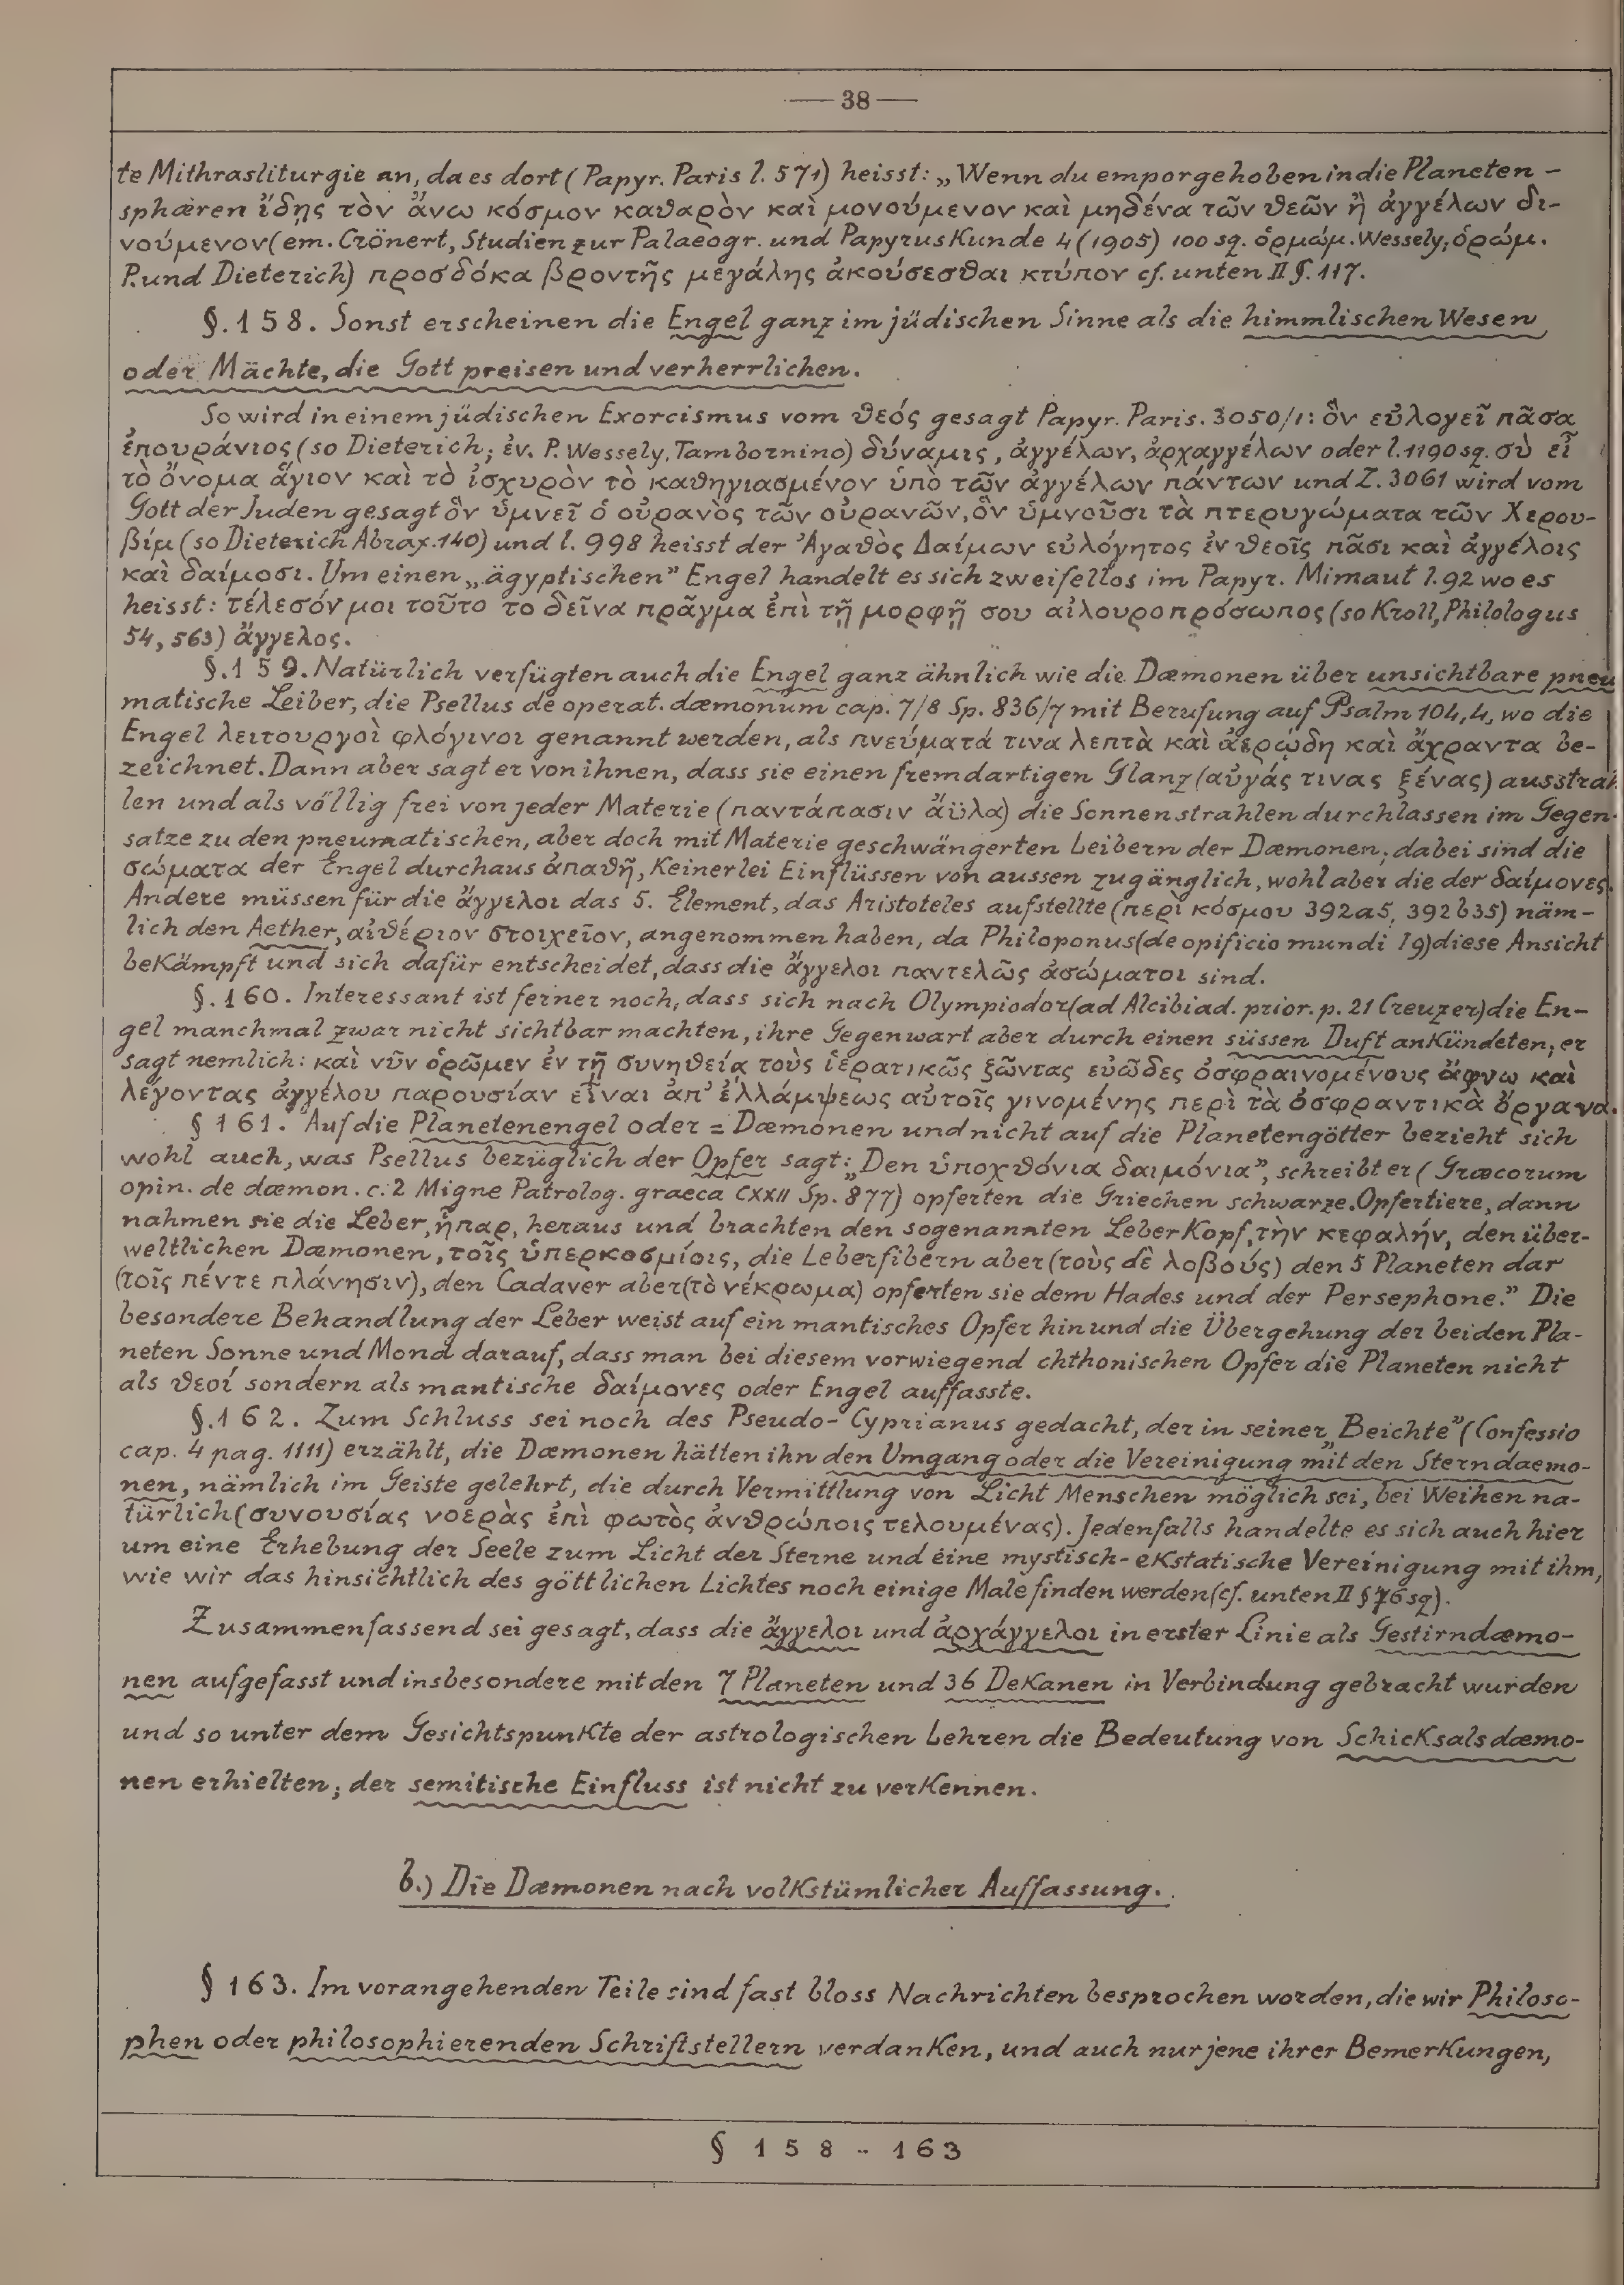 — 38 —
te Mithrasliturgie an, da es dort (Papyr. Paris l. 571) heisst: „Wenn du emporgehoben in die Planeten-
sphæren ἴδῃς τὸν ἄνω κόσμον καθαρὸν καὶ μονούμενον καὶ μηδένα τῶν θεῶν ἢ ἀγγέλων δι-
νούμενον (em. Crönert, Studien zur Palaeogr. und Papyruskunde 4 (1905) 100 sq. ὁρμώμ. Wessely; ὁρώμ.
P. und Dieterich) προσδόκα βροντῆς μεγάλης ἀκούσεσθαι κτύπον cf. unten II §. 117.
§. 158. Sonst erscheinen die Engel ganz im jüdischen Sinne als die himmlischen Wesen
oder Mächte, die Gott preisen und verherrlichen.
So wird in einem jüdischen Exorcismus vom θεός gesagt Papyr. Paris. 3050/1: ὃν εὐλογεῖ πᾶσα
ἐπουράνιος (so Dieterich; ἐν. P. Wessely, Tambornino) δύναμις, ἀγγέλων, ἀρχαγγέλων oder l. 1190 sq. σὺ εἶ
τὸ ὄνομα ἅγιον καὶ τὸ ἰσχυρὸν τὸ καθηγιασμένον ὑπὸ τῶν ἀγγέλων πάντων und Z. 3061 wird vom
Gott der Juden gesagt ὃν ὑμνεῖ ὁ οὐρανὸς τῶν οὐρανῶν, ὃν ὑμνοῦσι τὰ πτερυγώματα τῶν Χερου-
βίμ (so Dieterich Abrax. 140) und l. 998 heisst der Ἀγαθὸς Δαίμων εὐλόγητος ἐν θεοῖς πᾶσι καὶ ἀγγέλοις
καὶ δαίμοσι. Um einen „ägyptischen” Engel handelt es sich zweifellos im Papyr. Mimaut l. 92 wo es
heisst: τέλεσόν μοι τοῦτο το δεῖνα πρᾶγμα ἐπὶ τῇ μορφῇ σου αἰλουροπρόσωπος (so Kroll, Philologus
54, 563) ἄγγελος.
§. 159. Natürlich verfügten auch die Engel ganz ähnlich wie die Dæmonen über unsichtbare pneu
matische Leiber, die Psellus de operat. dæmonum cap. 7/8 Sp. 836/7 mit Berufung auf Psalm 104,4, wo die
Engel λειτουργοὶ φλόγινοι genannt werden, als πνεύματά τινα λεπτὰ καὶ ἀερώδη καὶ ἄχραντα be-
zeichnet. Dann aber sagt er von ihnen, dass sie einen fremdartigen Glanz (αὐγάς τινας ξένας) ausstrah
len und als völlig frei von jeder Materie (παντάπασιν ἄϋλα) die Sonnenstrahlen durchlassen im Gegen-
satze zu den pneumatischen, aber doch mit Materie geschwängerten Leibern der Dæmonen; dabei sind die
σώματα der Engel durchaus ἀπαθῆ, keinerlei Einflüssen von aussen zugänglich, wohl aber die der δαίμονες.
Andere müssen für die ἄγγελοι das 5. Element, das Aristoteles aufstellte (περὶ κόσμου 392a5, 392b35) näm-
lich den Aether, αἰθέριον στοιχεῖον, angenommen haben, da Philoponus (de opificio mundi I 9) diese Ansicht
bekämpft und sich dafür entscheidet, dass die ἄγγελοι παντελῶς ἀσώματοι sind.
§. 160. Interessant ist ferner noch, dass sich nach Olympiodor (ad Alcibiad. prior. p. 21 Creuzer) die En-
gel manchmal zwar nicht sichtbar machten, ihre Gegenwart aber durch einen süssen Duft ankündeten; er
sagt nemlich: καὶ νῦν ὁρῶμεν ἐν τῇ συνηθείᾳ τοὺς ἱερατικῶς ζῶντας εὐῶδες ὀσφραινομένους ἄφνω καὶ
λέγοντας ἀγγέλου παρουσίαν εἶναι ἀπ’ ἐλλάμψεως αὐτοῖς γινομένης περὶ τὰ ὀσφραντικὰ ὄργανα.
§ 161. Auf die Planetenengel oder = Dæmonen und nicht auf die Planetengötter bezieht sich
wohl auch, was Psellus bezüglich der Opfer sagt: „Den ὑποχθόνια δαιμόνια”, schreibt er (Græcorum
opin. de dæmon. c. 2 Migne Patrolog. graeca CXXII Sp. 877) opferten die Griechen schwarze Opfertiere, dann
nahmen sie die Leber, ἧπαρ, heraus und brachten den sogenannten Leberkopf, τὴν κεφαλήν, den über-
weltlichen Dæmonen, τοῖς ὑπερκοσμίοις, die Leberfibern aber (τοὺς δὲ λοβούς) den 5 Planeten dar
(τοῖς πέντε πλάνησιν), den Cadaver aber (τὸ νέκρωμα) opferten sie dem Hades und der Persephone.” Die
besondere Behandlung der Leber weist auf ein mantisches Opfer hin und die Übergehung der beiden Pla-
neten Sonne und Mond darauf, dass man bei diesem vorwiegend chthonischen Opfer die Planeten nicht
als θεοί sondern als mantische δαίμονες oder Engel auffasste.
§. 162. Zum Schluss sei noch des Pseudo-Cyprianus gedacht, der in seiner „Beichte” (Confessio
cap. 4 pag. 1111) erzählt, die Dæmonen hätten ihn den Umgang oder die Vereinigung mit den Sterndaemo-
nen, nämlich im Geiste gelehrt, die durch Vermittlung von Licht Menschen möglich sei, bei Weihen na-
türlich (συνουσίας νοερὰς ἐπὶ φωτὸς ἀνθρώποις τελουμένας). Jedenfalls handelte es sich auch hier
um eine Erhebung der Seele zum Licht der Sterne und eine mystisch-ekstatische Vereinigung mit ihm,
wie wir das hinsichtlich des göttlichen Lichtes noch einige Male finden werden (cf. unten II § 76 sq).
Zusammenfassend sei gesagt, dass die ἄγγελοι und ἀρχάγγελοι in erster Linie als Gestirndæmo-
nen aufgefasst und insbesondere mit den 7 Planeten und 36 Dekanen in Verbindung gebracht wurden
und so unter dem Gesichtspunkte der astrologischen Lehren die Bedeutung von Schicksalsdæmo-
nen erhielten; der semitische Einfluss ist nicht zu verkennen.
b.) Die Dæmonen nach volkstümlicher Auffassung.
§ 163. Im vorangehenden Teile sind fast bloss Nachrichten besprochen worden, die wir Philoso-
phen oder philosophierenden Schriftstellern verdanken, und auch nur jene ihrer Bemerkungen,
§ 158 - 163